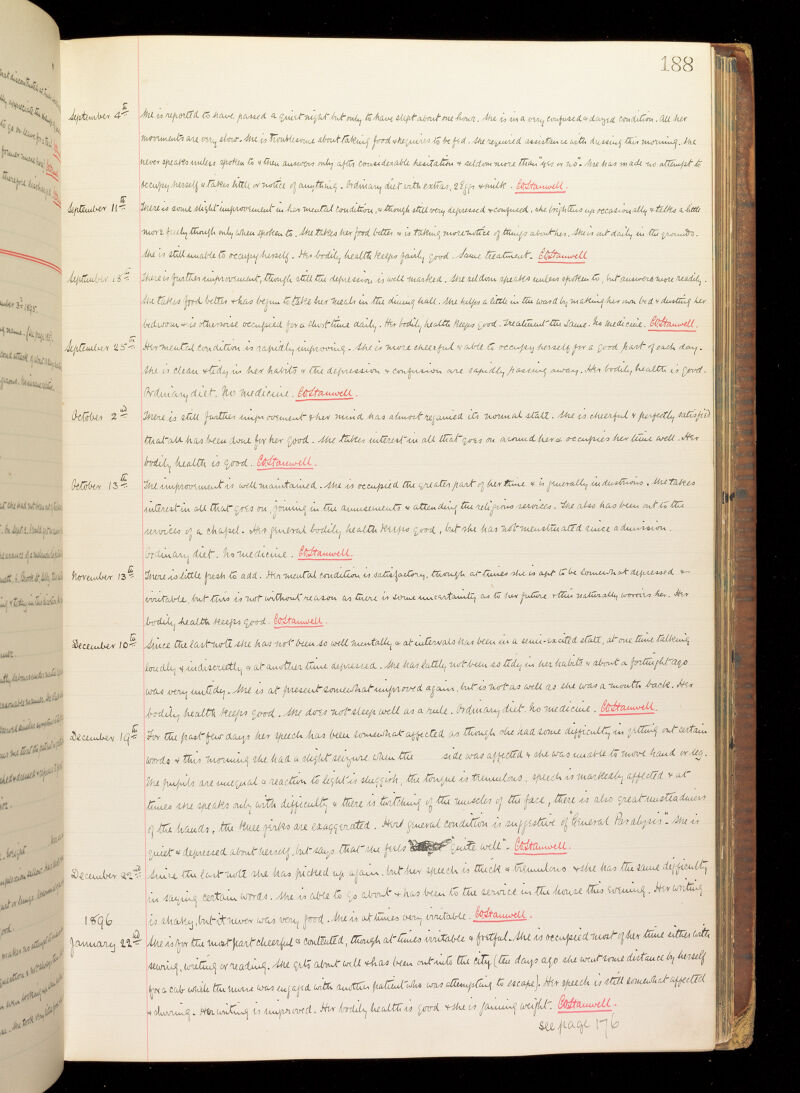 188
September 4th She is reported to have passed a quiet night but only to have slept about one hour. She is in a very confused & dazed condition. All her
movements are very slow. She is troublesome about taking food & requires to be fed. She required assistance with dressing this morning. She
never speaks unless spoken to & then answers only after considerable hesitation & seldom more than "yes or no". She has made no attempt to
occupy herself & takes little or notice of anything. Ordinary diet with extras, 2 Eggs & milk. EOStanwell.
September 11th There is some slight improvement in her mental condition, & though still very depressed & confused, she brightens up occasionally & talks a little
more freely though only when spoken to. She takes her food better & is taking more notice of things about her. She is out daily in the grounds.
She is still unable to occupy herself. Her bodily health keeps fairly good. Same treatment. EOStanwell
September 18th There is further improvement, though still the depression is well marked. She seldom speaks unless spoken to, but answers more readily.
She takes food better & has begun to take her meals in the dining hall. She helps a little in the ward by making her own bed & dusting her
bedroom & is otherwise occupied for a short time daily. Her bodily health keeps good. Treatment the same. No medicine. EOStanwell.
September 25th Her mental condition is rapidly improving. She is more cheerful & able to occupy herself for a good part of each day.
She is clean & tidy in her habits & the depression & confusion are rapidly passing away. Her bodily health is good.
Ordinary diet. No medicine. EOStanwell.
October 2nd There is still further improvement & her mind has almost regained its normal state. She is cheerful & perfectly satisfied
that all has been done for her good. She takes interest in all that goes on around her & occupies her time well. Her
bodily health is good. EOStanwell.
October 13th The improvement is well maintained. She is occupied the greater part of her time & is generally industrious. She takes
interest in all that goes on, joining in the amusements & attending the religious services. She also has been out to the
services of a chapel. Her general bodily health keeps good, but she has not menstruated since admission.
Ordinary diet. No medicine. EOStanwell.
November 13th There is little fresh to add. Her mental condition is satisfactory, though at times she is apt to be somewhat depressed &
irritable, but this is not without reason as there is some uncertainty as to her future & this naturally worries her. Her
bodily health keeps good. EOStanwell.
December 10th Since the last note she has not been so well mentally & at intervals has been in a semi-excited state, at one time talking
loudly & indiscreetly & at another time depressed. She has lately not been so tidy in her habits & about a fortnight ago
was very untidy. She is at present somewhat improved again, but is not as well as she was a month back. Her
bodily health keeps good. She does not sleep well as a rule. Ordinary diet. No medicine. EOStanwell.
December 19th For the past few days her speech has been somewhat affected as though she had some difficulty in getting out certain
words & this morning she had a slight seizure when the side was affected & she was unable to move hand or leg.
The pupils are unequal & reaction to light is sluggish, the tongue is tremulous, speech is markedly affected & at
times she speaks only with difficulty & there is twitching of the muscles of the face, there is also great unsteadiness
of the hands, the knee jerks are exaggerated. Her general condition is suggestive of "General Paralysis". She is
quiet & depressed about herself, but says that she feels "quite well". EOStanwell.
December 22nd Since the last note she has picked up again, but her speech is thick & tremulous & she has the same difficulty
in saying certain words. She is able to go about & has been to the service in the house this evening. Her writing
is shaky, but it never was very good. She is at times very irritable. EOStanwell.
1896
January 22nd She is for the most part cheerful & contented, though at times irritable & fretful. She is occupied most of her time either with
sewing, writing or reading. She gets about well & has been out into the city (ten days ago she went some distance by herself
for a cab while the nurse was engaged with another patient who was attempting to escape). Her speech is still somewhat affected
& slurring. Her writing is improved. Her bodily health is good & she is gaining weight. EOStanwell.
see page 176